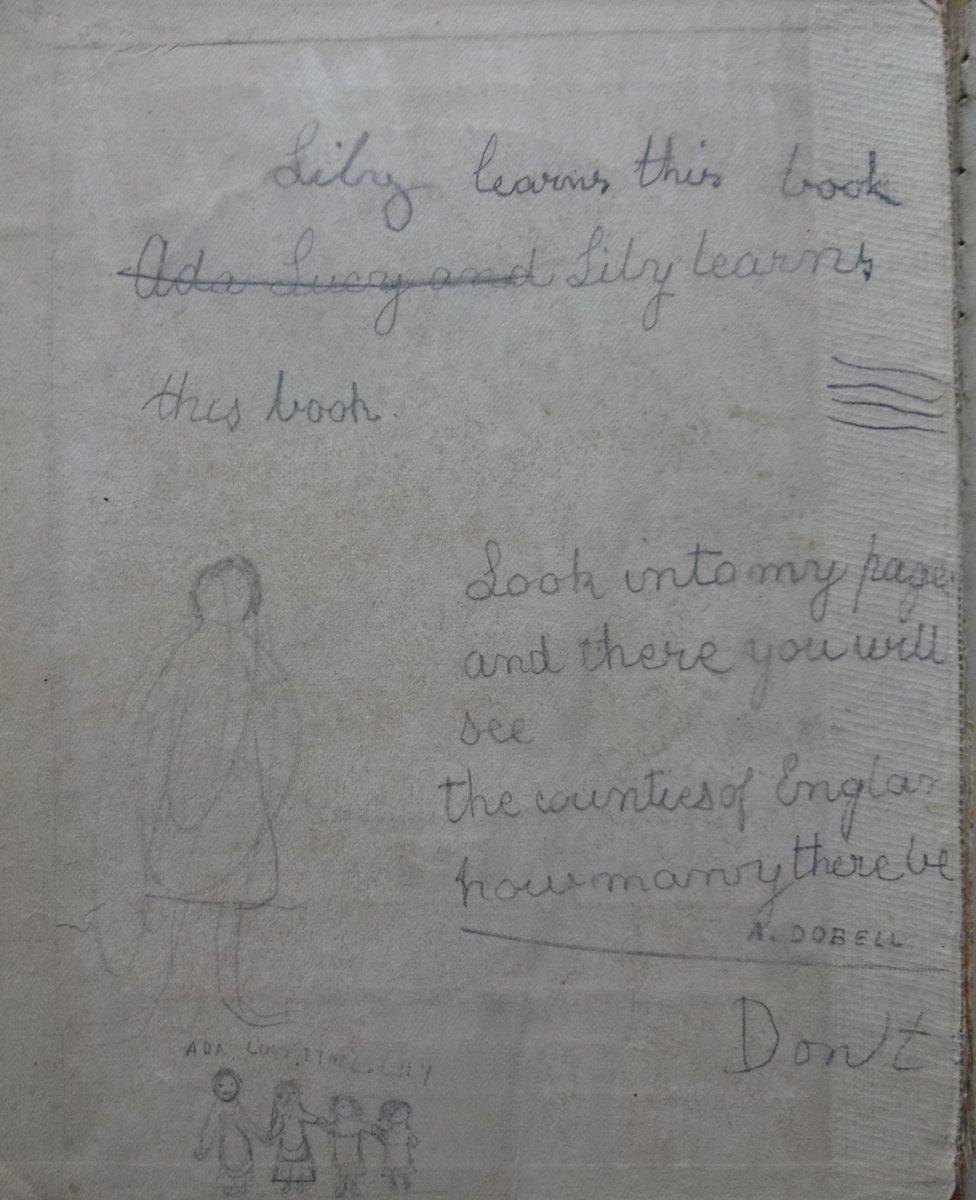 Lily learns this book
Ada Lucy and Lily learns
this book.
Look into my page
and there you will
see
the counties of Englan
how many there be
A. DOBELL
Don't
ADA. LUCY. ETHEL. LILY